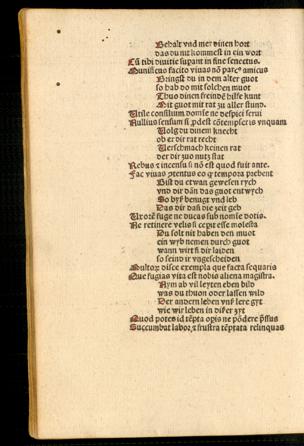 Behalt vnd mer dinen hort
das du nit kommest in ein wort
Cū tibi diuitie supant in fine senectus.
Munificus facito viuas nō parcꝰ amicus
Bringst du in dem alter guot
so hab do mit solchen muot
Thuo dinen freinde hilfe kunt
Mit guot mit rat zu aller stund.
Utile consilium domīe ne despici serui
Nullius sensum si ꝓdest cōtempseris vnquam
Volg du dinem knecht
ob er dir rat recht
Verschmach keinen rat
der dir zuo nutz stat
Rebus ⁊ in censu si nō est quod fuit ante.
Fac viuas ptentus eo ꝙ tempora prebent
Bist du etwan gewesen rych
vnd dir dān das guot entwych
So byß benugt vnd leb
Das dir dañ die zeit geb
Uxorē fuge ne ducas sub nomīe dotis.
Ne retinere velis si cepit esse molesta
Du solt nit haben den muot
ein wyb nemen durch guot
wann wirt si dir laiden
so seind ir vngescheiden
Multoꝝ disce exempla que facta sequaris
Que fugias vita est nobis aliena magistra.
Nym ab vil leyten eben bild
was du thuon oder lassen wild
Der andern leben vnß lere gyt
wie wir leben in diser zyt
Quod potes id tēpta opis ne pōdere p̄ssus
Succumbat labor ⁊ frustra tēptata relinquas